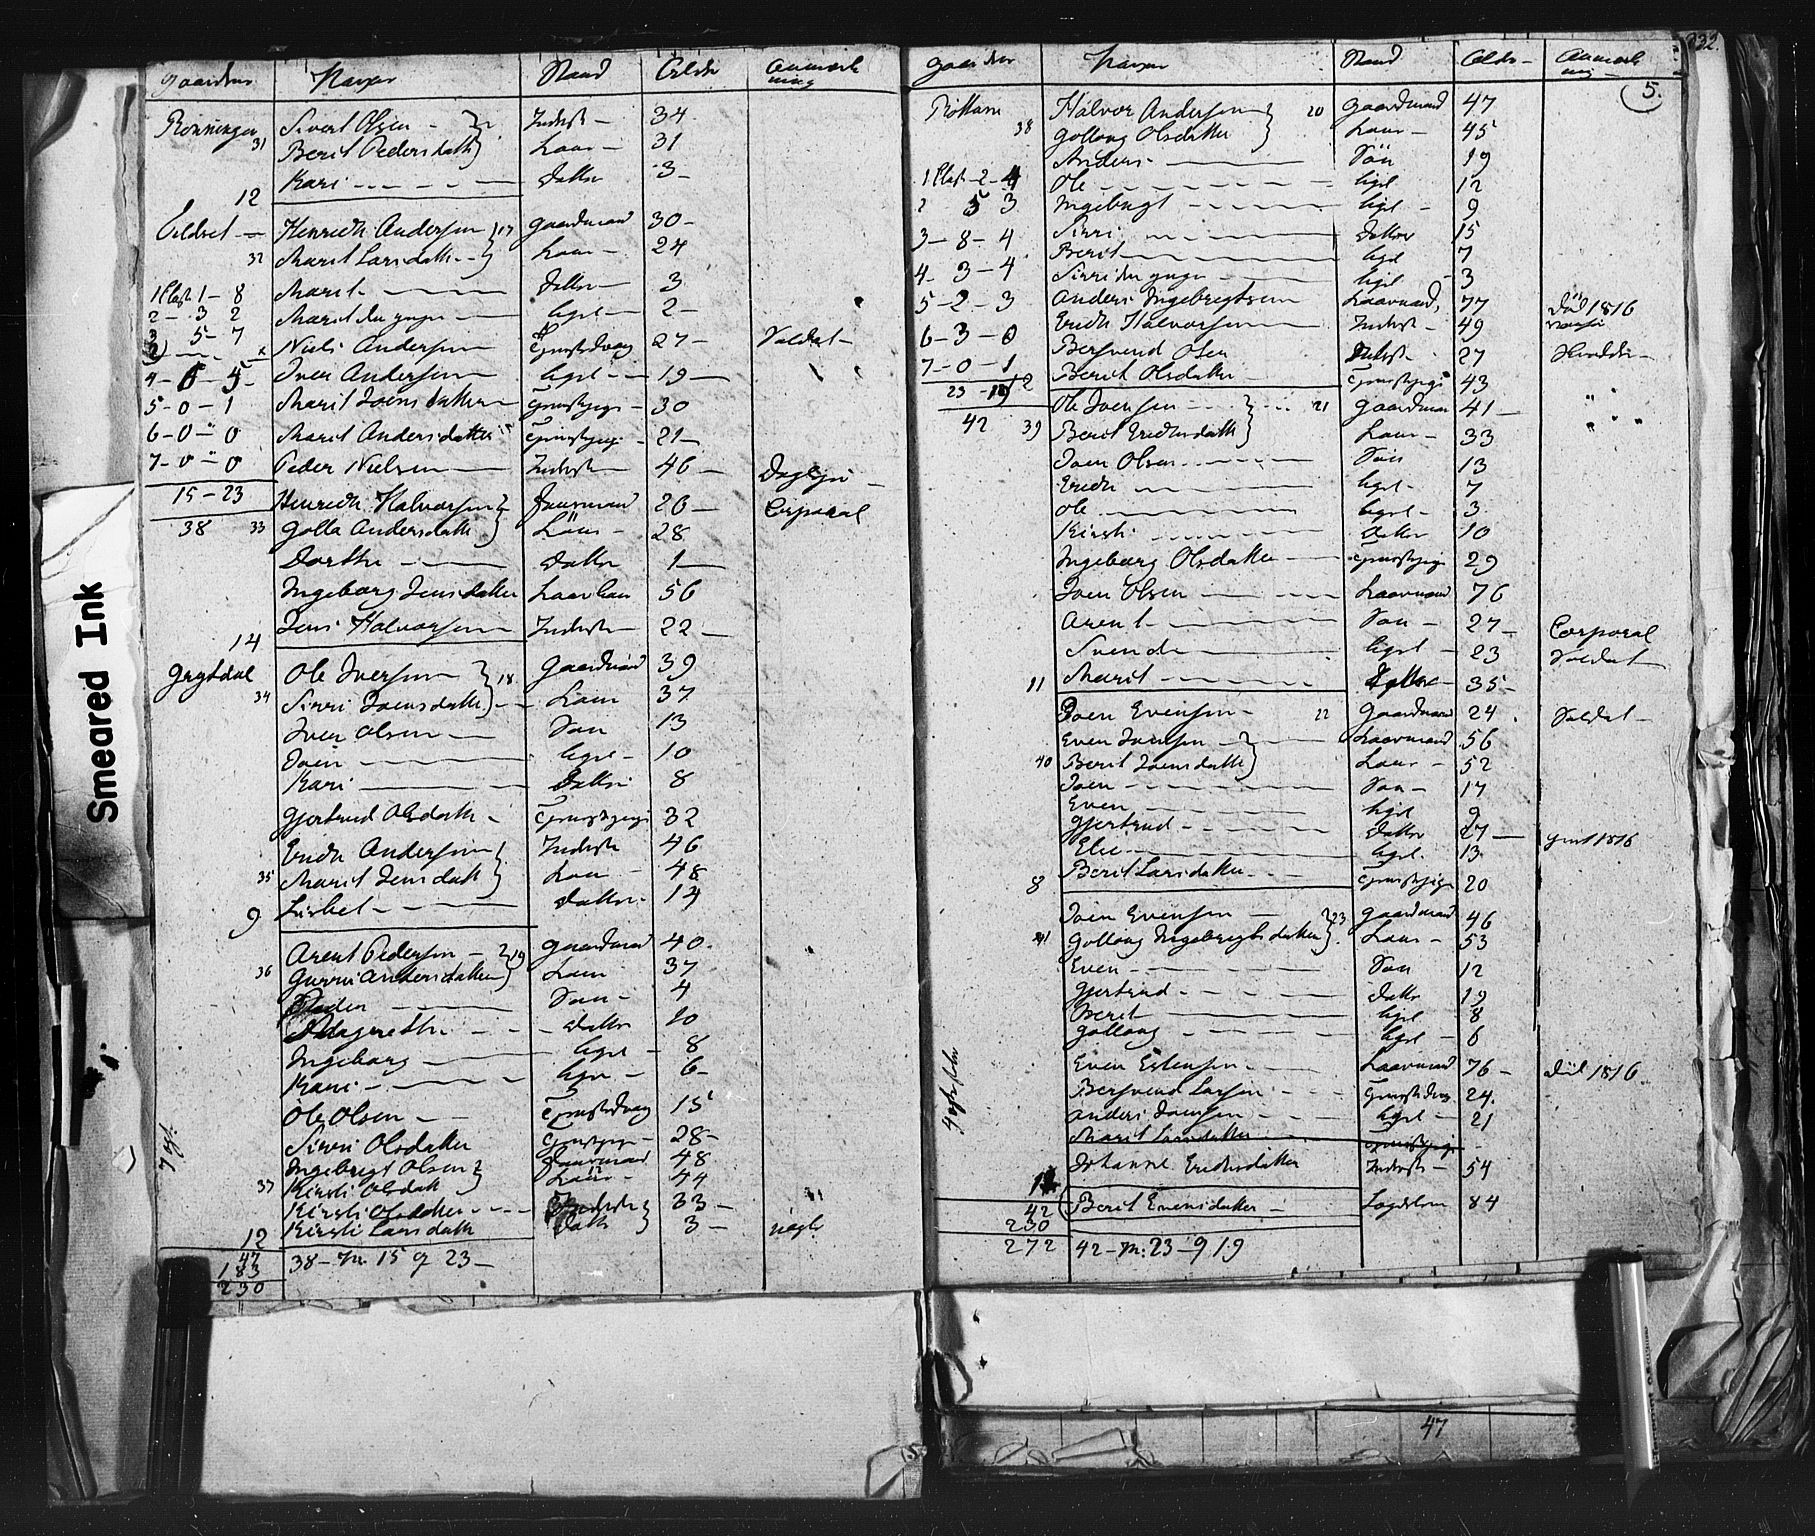 Gaardene Navne Stand Alder Anmærkning
Rønningen Sivert Olsen – Inderst – 34
31 Berit Pedersdatt Kone – 31
Kari Datter 3 –
12
Henrich Andersen 17 Gaardmand 30 –
32 Marit Larsdatt Kone – 24
1 Klas. 1 – 8 Marit Datter 3
2 – 3 2 Marit den yngre ligel – 2 –
3 5 – 7 Niels Andersen Tjenestedreng 27 – Soldat –
4 – 6 – 5 – Iver Andersen ligel – 19 –
5 – 0 – 1 Marit Joensdatter Tjenestepige – 30
6 – 0 – 0 Marit Andersdatter Tjenestepige – 21 –
7 – 0 – 0 Peder Nielsen Inderst 46 –
15 – 23 Henrich Halvorsen 26 – Corporal
38 33 Golla Andersdatt Kone – 28
Dorthe Datter 1 –
Ingeborg Jensdatter 56
Jens Halvorsen Inderst 22 –
14
Grytdal Ole Iversen 18 Gaardmand 39
34 Sirri Joensdatt Kone 37
Iver Olsen Søn 13
Joen ligel – 10
Kari Datter 8
Gjertrud Olsdatt – Tjenestepige 32
Erich Andersen Inderst 46
35 Marit Jensdatt Kone – 48
Lisbet Datter 14
9
Arent Pedersen – 19 Gaardmand 40
36 Gurru Andersdatter Kone 37
Peder Søn – 4
Magrethe Datter 10
Ingeborg ligel – 8
Kari – ligel – 6 –
Ole Olsen Tjenestedreng 15
Sirri Olsdatter Tjenestepige – 28 –
Ingebrigt Olsen Huusmand 48
37 Kirsti Olsdatt Kone – 44
Kirsti Olsdatter Inderst 33 –
12 Kirsti Larsdatt Datter 3 –
47
183 38 – M. 15 q 23 –
230
Gaarden Navne Stand Alder – Anmærkning
5.
Halvor Andersen 20 Gaardmand 47
38 Gollaug Olsdatter Kone – 45
Anders – Søn 19
1 Klas – 2 – 4 Ole ligel 12
2 5 3 Ingebrigt ligel – 9
3 – 8 – 4 Sirri Datter 15
Berit ligel 7
4 – 3 – 4 Sirri den yngre ligel – 3
5 – 2 – 3 Anders Ingebrigtsen 77 død 1816
6 – 3 – 0 Erich Halvorsen Inderst – 49
7 – 0 – 1 Bersvend Olsen Inderst 27
Berit Olsdatter Tjenestepige 43
23 – 19 12
Ole Joensen 21 Gaardman 41 –
42 39 Berit Erichsdatt Kone – 33
Joen Olsen Søn 13
Erich ligel – 7
Ole ligel – 3
Kirsti Datter 10
Ingeborg Olsdatter Tjenestepige 29
Joen Olsen 76
Arent Søn – 27 – Corporal
Svend ligel – 23 Soldat
11 Marit Datter 35 –
Joen Evensen – 22 Gaardmand 24 Soldat –
Even Joensen 56
40 Berit Joensdatt Kone – 52
Joen – Søn – 17
Even ligel 9
Gjertrud – Datter 27 – 1816
Elie ligel – 13
8 Berit Larsdatter Tjenestepige 20
Joen Evensen 23 Gaardmand 46
41 Gollaug Ingebrigtsdatter Kone – 53
Even – Søn 12
Gjertrud – Datter 19
Berit ligel 8
Gollaug ligel – 6
Even Estensen – 76 – død 1816
Bersvend Larsen – Tjenestedreng 24
Anders Joensen ligel – 21
Marit Larsdatter Tjenestepige –
Johanne Erichsdatter Inderst – 54
42 Berit Evensdatter – Logdslem 84
230
272 42 – M: 23 – q 19
Smeared Ink
47